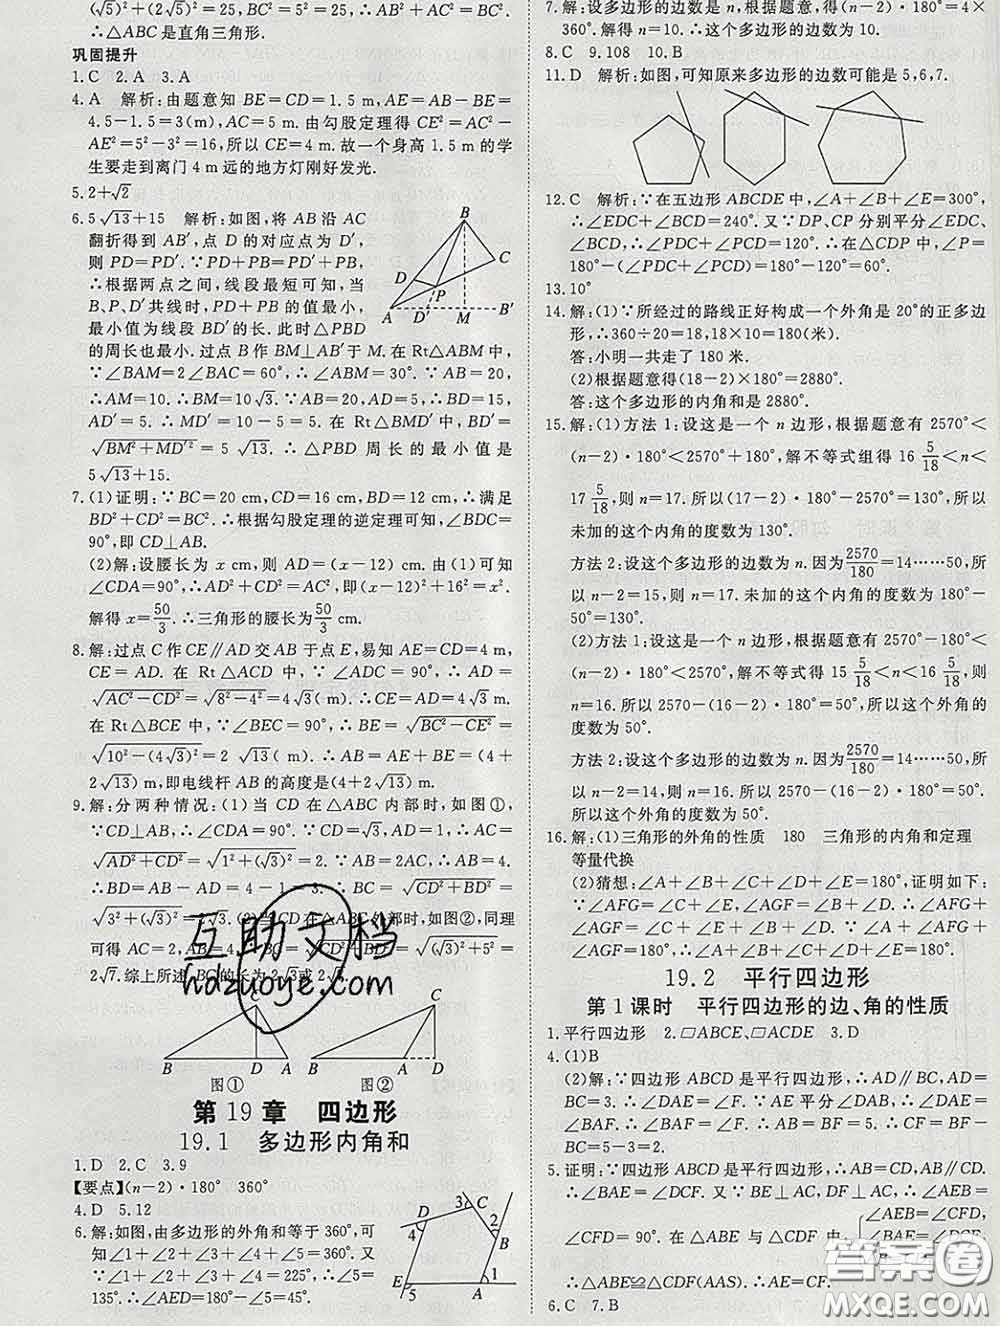 (√5)²+(2√5)²=25, BC²=5²=25, ∴AB²+AC²=BC².
∴△ABC是直角三角形.
巩固提升
1.C 2.A 3.A
4.A 解析:由题意知 BE=CD=1.5 m,AE=AB-BE=
4.5-1.5=3(m),AC=5 m.由勾股定理得 CE²=AC²-
AE²=5²-3²=16,所以 CE=4 m.故一个身高 1.5 m 的学
生要走到离门 4 m 远的地方灯刚好发光.
5.2+√2
6.5√13+15 解析:如图,将 AB 沿 AC
翻折得到 AB′,点 D 的对应点为 D′,
则 PD=PD′.∴PD+PB=PD′+PB.
∴根据两点之间,线段最短可知,当
B、P、D′共线时,PD+PB 的值最小,
最小值为线段 BD′的长.此时△PBD
的周长也最小.过点 B 作 BM⊥AB′于 M.在 Rt△ABM 中,
∵∠BAM=2∠BAC=60°,∴∠ABM=30°.∵AB=20,
∴AM=10.∴BM=10√3.∵AB=20,AD=5,∴BD=15,
AD′=5.∴MD′=10-5=5.在 Rt△BMD′中,BD′=
√(BM²+MD′²)=5√13.∴△PBD 周长的最小值是
5√13+15.
7.(1)证明:∵BC=20 cm,CD=16 cm,BD=12 cm,∴满足
BD²+CD²=BC².∴根据勾股定理的逆定理可知,∠BDC=
90°,即 CD⊥AB.
(2)解:设腰长为 x cm,则 AD=(x-12) cm.由(1)可知
∠CDA=90°,∴AD²+CD²=AC²,即(x-12)²+16²=x².
解得 x=50/3.∴三角形的腰长为50/3 cm.
8.解:过点 C 作 CE∥AD 交 AB 于点 E,易知 AE=CD=4 m,
CE=AD.在 Rt△ACD 中,∵∠ADC=90°,∴AD=
√(AC²-CD²)=√(8²-4²)=4√3(m).∴CE=AD=4√3 m.
在 Rt△BCE 中,∵∠BEC=90°,∴BE=√(BC²-CE²)=
√(10²-(4√3)²)=2√13(m).∴AB=AE+BE=(4+
2√13) m,即电线杆 AB 的高度是(4+2√13) m.
9.解:分两种情况:(1)当 CD 在△ABC 内部时,如图①,
∵CD⊥AB,∴∠CDA=90°.∵CD=√3,AD=1,∴AC=
√(AD²+CD²)=√(1²+(√3)²)=2.∵AB=2AC,∴AB=
4.∴BD=AB-AD=4-1=3.∴BC=√(CD²+BD²)=
√(3²+(√3)²)=2√3.(2)当CD在△ABC外部时,如图②,同理
可得 AC=2,AB=4,BD=5.∴BC=√((√3)²+5²)=
2√7.综上所述,BC的长为2√3或2√7.
B D A C
图①
B A D C
图②
第 19 章 四边形
19.1 多边形内角和
1.D 2.C 3.9
【要点】(n-2)·180° 360°
4.D 5.12
6.解:如图,由多边形的外角和等于360°,可
知∠1+∠2+∠3+∠4+∠5=360°.又
∵∠1+∠2+∠3+∠4=225°,∴∠5=
135°.∴∠AED=180°-∠5=45°.
7.解:设多边形的边数是 n,根据题意,得(n-2)·180°=4×
360°.解得 n=10.∴这个多边形的边数为 10.
8.C 9.108 10.B
11.D 解析:如图,可知原来多边形的边数可能是 5,6,7.
12.C 解析:∵在五边形 ABCDE 中,∠A+∠B+∠E=300°,
∴∠EDC+∠BCD=240°.又∵DP、CP 分别平分∠EDC、
∠BCD,∴∠PDC+∠PCD=120°.∴在△CDP 中,∠P=
180°-(∠PDC+∠PCD)=180°-120°=60°.
13.10°
14.解:(1)∵所经过的路线正好构成一个外角是 20°的正多边
形,∴360÷20=18,18×10=180(米).
答:小明一共走了 180 米.
(2)根据题意得(18-2)×180°=2880°.
答:这个多边形的内角和是 2880°.
15.解:(1)方法 1:设这是一个 n 边形,根据题意有 2570°<
(n-2)·180°<2570°+180°,解不等式组得 16 5/18<n<
17 5/18,则 n=17.所以(17-2)·180°-2570°=130°.所以
未加的这个内角的度数为 130°.
方法 2:设这个多边形的边数为 n.因为2570/180=14……50,所
以 n-2=15,则 n=17.未加的这个内角的度数为 180°-
50°=130°.
(2)方法 1:设这是一个 n 边形,根据题意有 2570°-180°
<(n-2)·180°<2570°,解不等式得 15 5/18<n<16 5/18,则
n=16.所以 2570°-(16-2)·180°=50°.所以这个外角的
度数为 50°.
方法 2:设这个多边形的边数为 n.因为2570/180=14……50,
所以 n-2=14,则 n=16.所以 2570°-(16-2)·180°=50°.
所以这个外角的度数为 50°.
16.解:(1)三角形的外角的性质 180 三角形的内角和定理
等量代换
(2)猜想:∠A+∠B+∠C+∠D+∠E=180°,证明如下:
∵∠AFG=∠C+∠E,∠AGF=∠B+∠D,∠A+∠AFG+
∠AGF=180°,∴∠A+∠B+∠C+∠D+∠E=180°.
19.2 平行四边形
第 1 课时 平行四边形的边、角的性质
1.平行四边形 2.▱ABCE、▱ACDE 3.D
4.(1)B
(2)解:∵四边形 ABCD 是平行四边形,∴AD∥BC,AD=
BC=3.∴∠DAE=∠F.∵AE 平分∠DAB,∴∠DAE=
∠BAF.∴∠BAF=∠F.∴AB=BF=5.∴CF=BF-BC=
5-3=2.
5.证明:∵四边形 ABCD 是平行四边形,∴AB=CD,AB∥CD.
∴∠BAE=∠DCF.又∵BE⊥AC,DF⊥AC,∴∠AEB=
∠CFD=90°.在△ABE 与△CDF 中,∠AEB=∠CFD,∠BAE=∠DCF,
∴△ABE≌△CDF(AAS).∴BE=DF.
6.C 7.B
互助文档
hdzuoye.com
答案圈
MXQE.COM